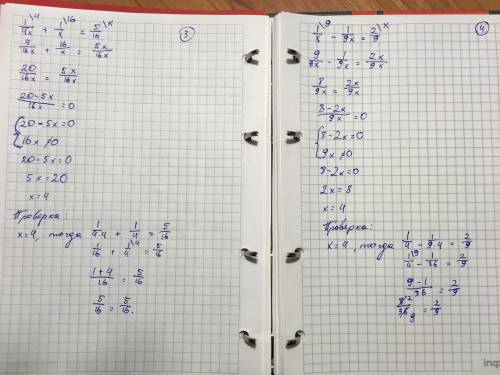 3
1/4x \4 + 1/x \16 = 5/16 \x
4/16x + 16/x = 5x/16x
20/16x = 5x/16x
20-5x/16x = 0
{ 20-5x=0
16x≠0
20-5x=0
5x=20
x=4
Проверка:
x=4, тогда 1/4·4 + 1/4 = 5/16
1/16 + 1/4 \4 = 5/16
1+4/16 = 5/16
5/16 = 5/16.
4
1/x \9 - 1/9x = 2/9 \x
9/9x - 1/9x = 2x/9x
8/9x = 2x/9x
8-2x/9x = 0
{ 8-2x=0
9x≠0
8-2x=0
2x=8
x=4
Проверка:
x=4, тогда 1/4 - 1/9·4 = 2/9
1/4 \9 - 1/36 = 2/9
9-1/36 = 2/9
8 2/36 9 = 2/9